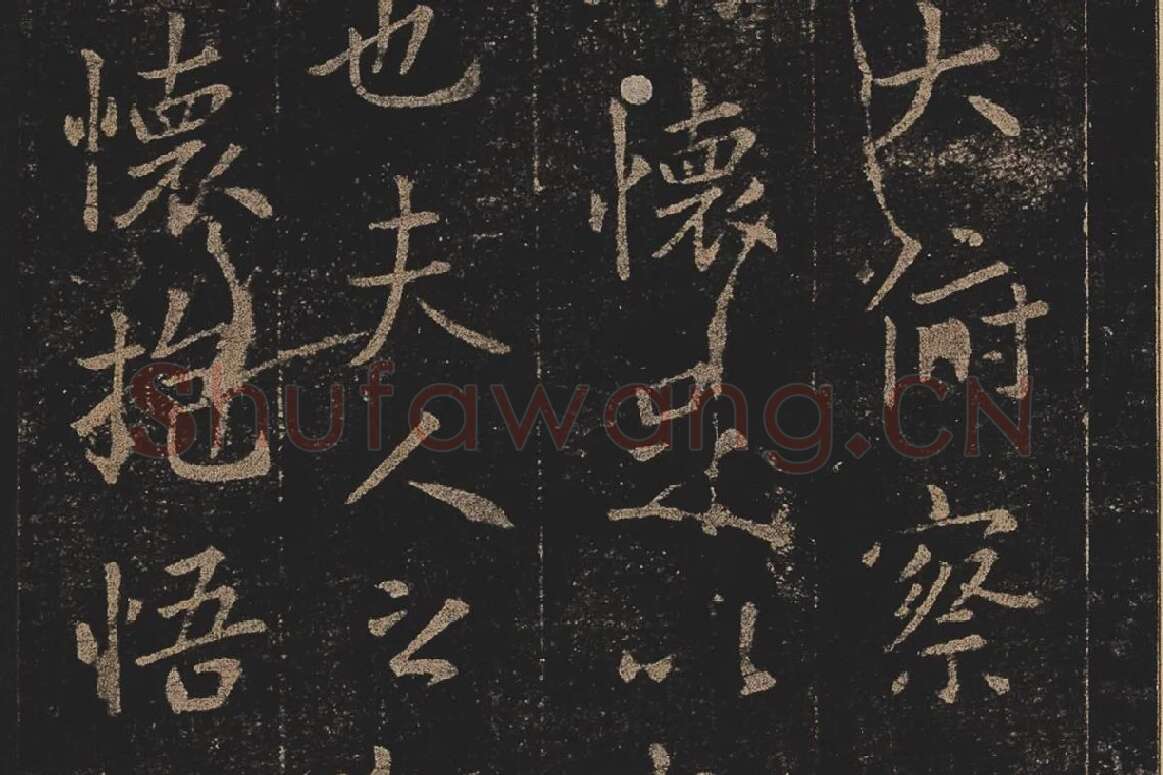 大俯察
懷足以
也夫人之
懷抱悟
Shufawang.CN